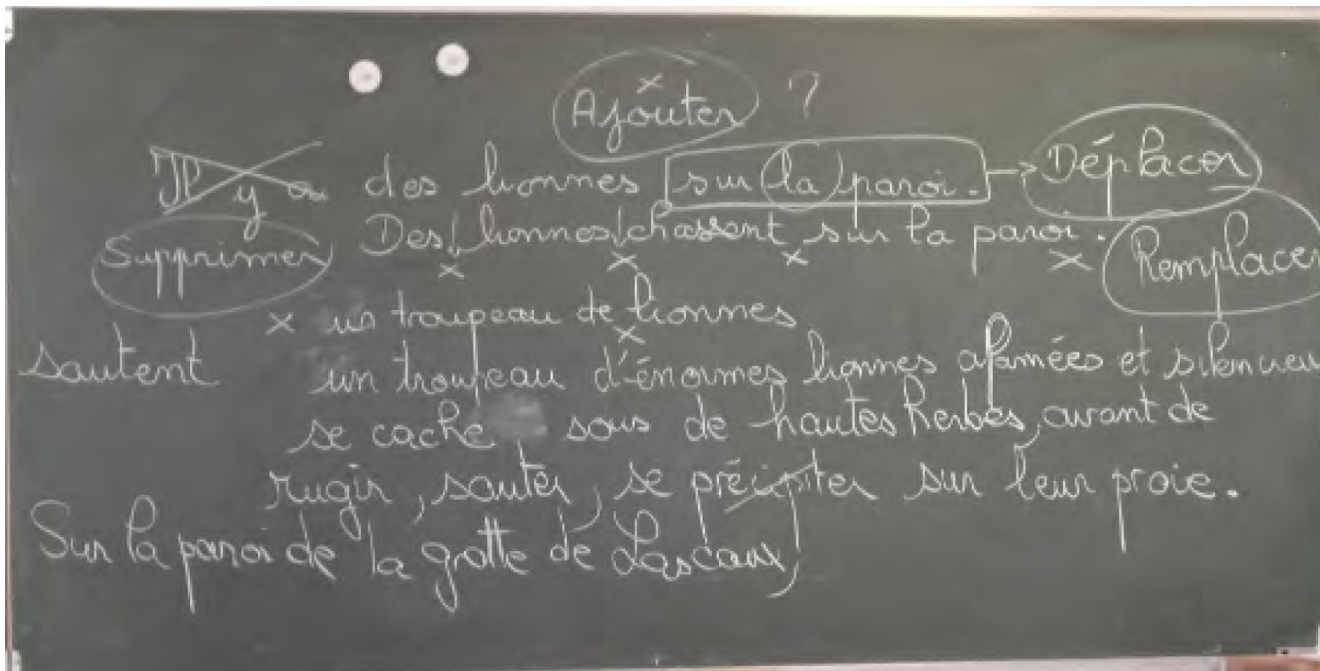 Ajouter ?
Il y a des lionnes sur la paroi. → Déplacer
Supprimer Des lionnes chassent sur la paroi. Remplacer
× un troupeau de lionnes
sautent un troupeau d'énormes lionnes afamées et silencieu
se cache sous de hautes herbes, avant de
rugir, sauter, se précipiter sur leur proie.
Sur la paroi de la grotte de Lascaux,